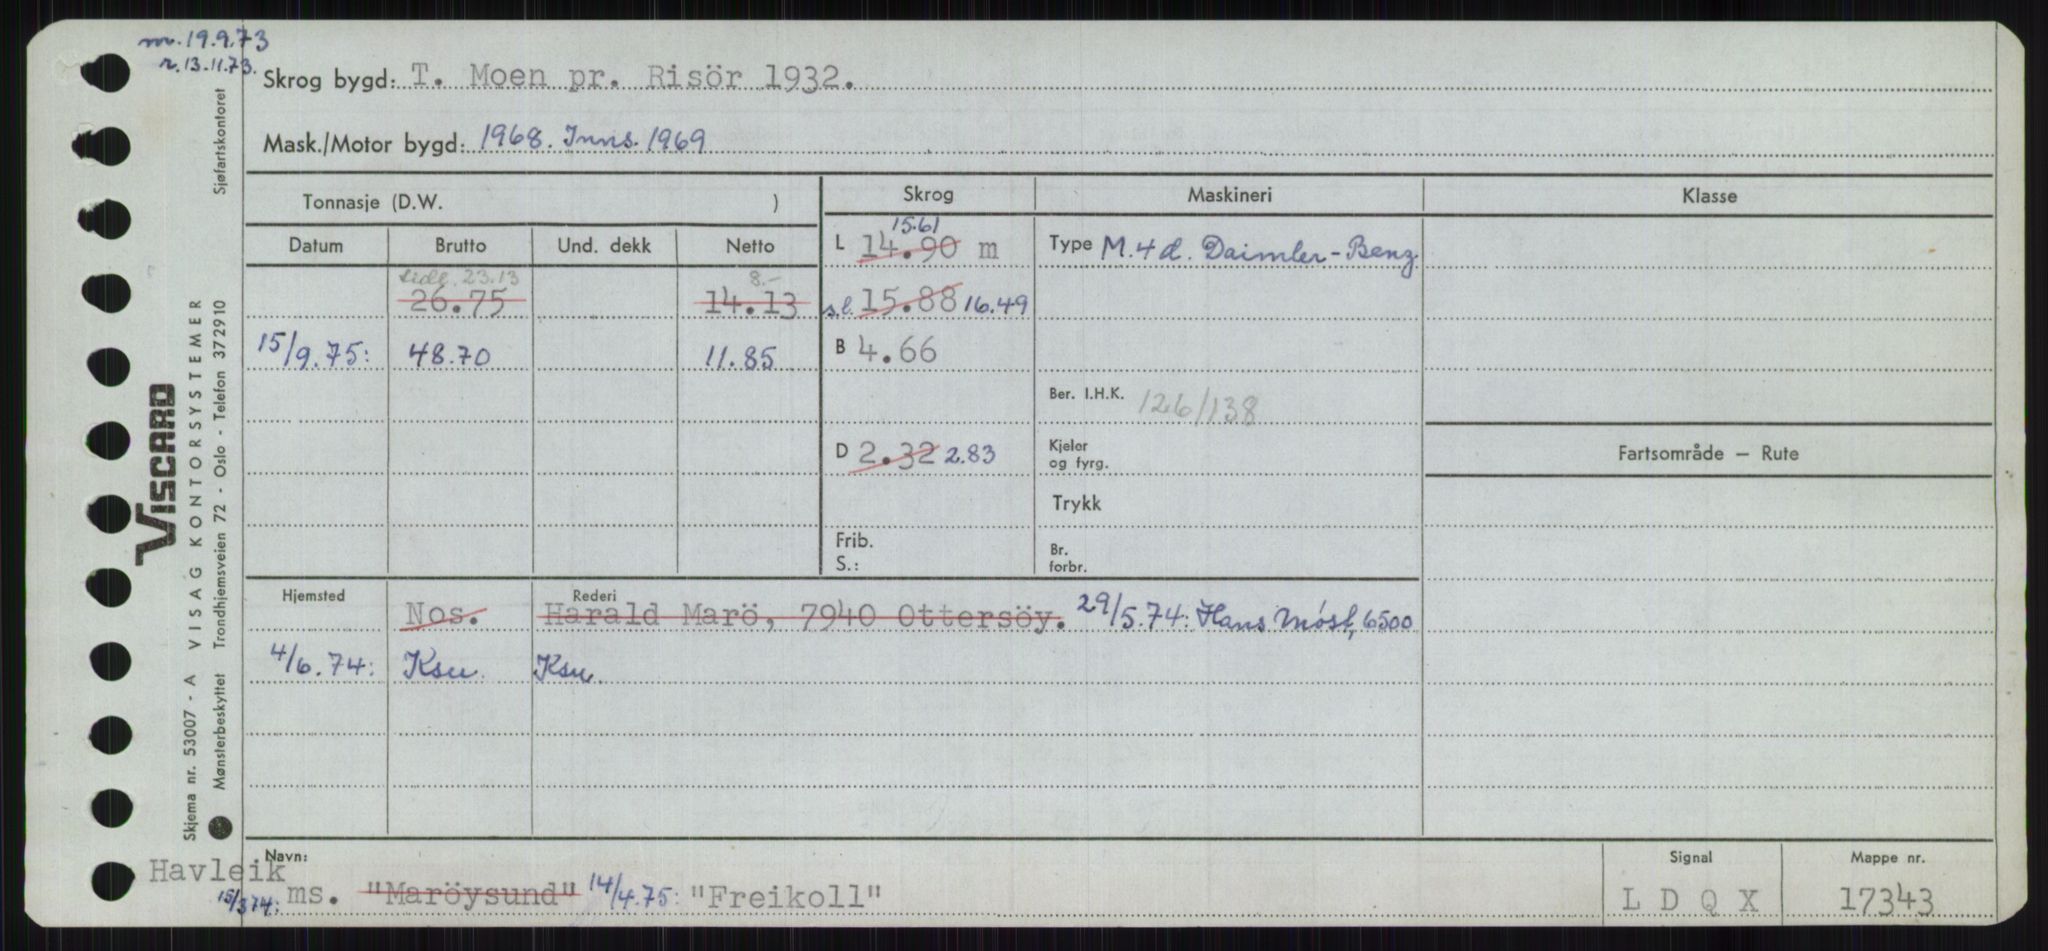 m. 19.9.73
r. 13.11.73.
Skrog bygd: T. Moen pr. Risör 1932.
Mask./Motor bygd: 1968. Inns. 1969
Tonnasje (D.W. )
Skrog
Maskineri
Klasse
Datum Brutto Und. dekk Netto
L 14.90 m 15.61
Type M. 4 d. Daimler-Benz
23.13 8.-
26.75 14.13
s.l. 15.88 16.49
15/9.75: 48.70 11.85
B 4.66
Ber. I.H.K. 126/138
D 2.32 2.83
Kjeler
og fyrg.
Fartsområde — Rute
Trykk
Frib.
S.:
Br.
forbr.
Hjemsted Rederi
Nos. Harald Marö, 7940 Ottersöy. 29/5.74: Hans Møst, 6500
4/6.74: Ksu. Ksu.
Navn:
Havleik
15/3 74: ms. "Maröysund" 14/4.75: "Freikoll"
Signal
L D Q X
Mappe nr.
17343
Sjøfartskontoret
VISCARD
VISAG KONTORSYSTEMER
Trondhjemsveien 72 - Oslo - Telefon 372910
Skjema nr. 53007 - A
Mønsterbeskyttet